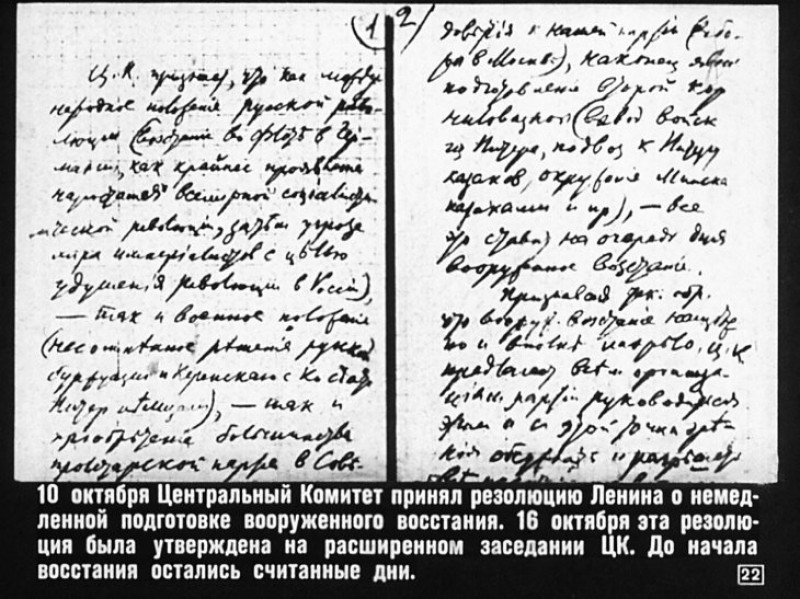 (1
Ц.К. признает, что как между-
народное положение русской рево-
люции (возстание во флоте в Гер-
мании, как крайнее проявление
нарастания всемирной социалисти-
ческой революции, затем угроза
мира империалистов с целью
удушения революции в России),
— так и военное положение
(несомненное решение русской
буржуазии и Керенского с Ко сдать
Питер немцам), — так и
приобретение большинства
пролетарской партией в Сове-
2)
доверия к нашей партии (выбо-
ры в Москве), наконец явное
подготовление второй кор-
ниловщины (вывод войск
из Питера, подвоз к Питеру
казаков, окружение Минска
казаками и пр), — все
это ставит на очередь дня
вооруженное возстание.
Признавая так. обр.
что вооруж. возстание неизбеж-
но и вполне назрело, Ц.К.
предлагает всем организа-
циям партии руководиться
этим и с этой точки зре-
ния обсуждать и разрешать
10 октября Центральный Комитет принял резолюцию Ленина о немед-
ленной подготовке вооруженного восстания. 16 октября эта резолю-
ция была утверждена на расширенном заседании ЦК. До начала
восстания остались считанные дни.
22